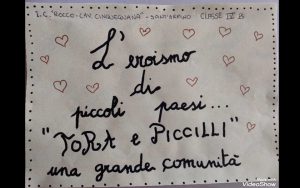 I.C. "ROCCO-CAV. CINQUEGRANA" - SANT'ARPINO CLASSE IV B
L'eroismo
di
piccoli paesi...
"TORA e PICCILLI"
una grande comunità
VideoShow